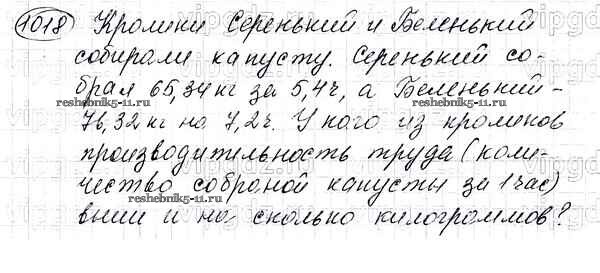 1018 Кролики Серенький и Беленький
собирали капусту. Серенький со-
брал 65,34 кг за 5,4ч, а Беленький -
76,32 кг на 7,2ч. У кого из кроликов
производительность труда (коли-
чество собраной капусты за 1 час)
выше и на сколько килограммов?
reshebnik5-11.ru
reshebnik5-11.ru